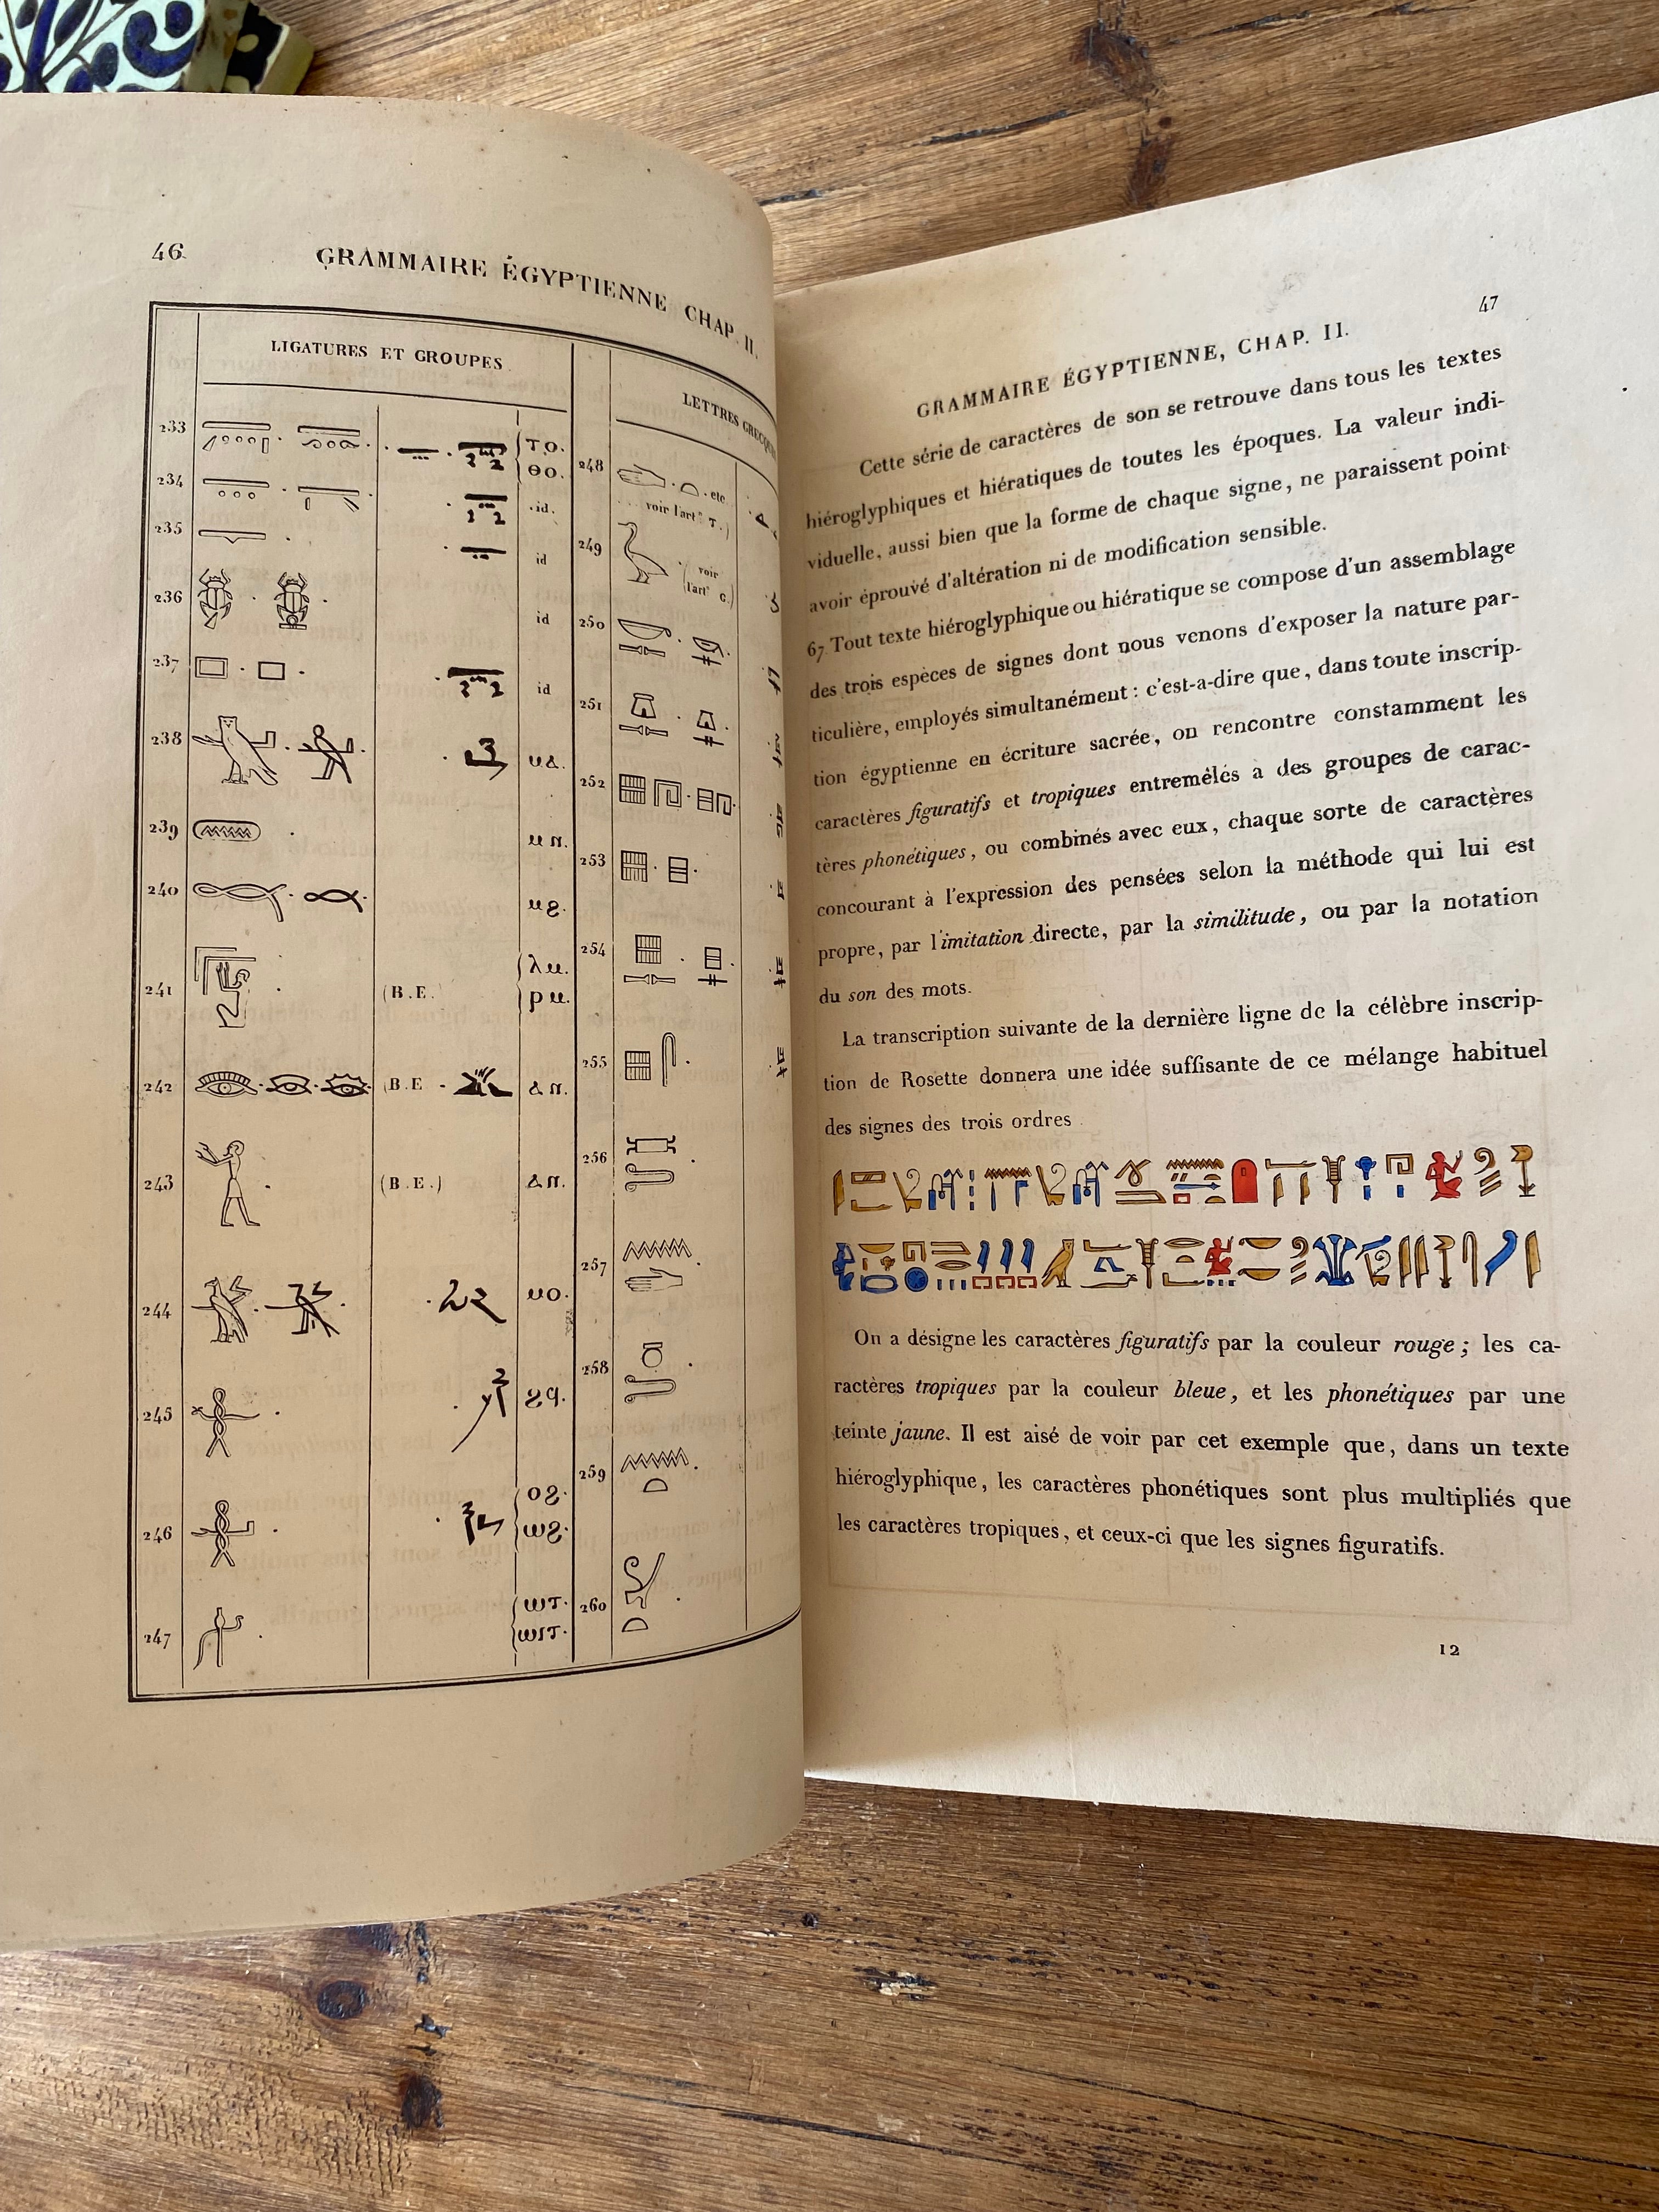 46
GRAMMAIRE ÉGYPTIENNE CHAP. II.
LIGATURES ET GROUPES
233
ⲦⲞ.
ⲐⲞ.
234
.id.
235
id
236
id
237
id
238
ⲙⲁ.
239
ⲙⲛ.
240
ⲙϩ.
241
(B.E.)
ⲗⲙ.
ⲣⲙ.
242
(B.E
ⲁⲛ.
243
(B.E.)
ⲁⲛ.
244
ⲙⲟ.
245
246
ⲟϩ.
ⲱϩ.
247
ⲱⲧ.
ⲱⲓⲧ.
LETTRES
248
etc
voir l'art. T.)
249
(voir
l'art.
250
251
252
253
254
255
256
257
258
259
260
47
GRAMMAIRE ÉGYPTIENNE, CHAP. II.
Cette série de caractères de son se retrouve dans tous les textes
hiéroglyphiques et hiératiques de toutes les époques. La valeur indi-
viduelle, aussi bien que la forme de chaque signe, ne paraissent point
avoir éprouvé d'altération ni de modification sensible.
67. Tout texte hiéroglyphique ou hiératique se compose d'un assemblage
des trois espèces de signes dont nous venons d'exposer la nature par-
ticulière, employés simultanément : c'est-a-dire que, dans toute inscrip-
tion égyptienne en écriture sacrée, on rencontre constamment les
caractères figuratifs et tropiques entremêlés à des groupes de carac-
tères phonétiques, ou combinés avec eux, chaque sorte de caractères
concourant à l'expression des pensées selon la méthode qui lui est
propre, par l'imitation directe, par la similitude, ou par la notation
du son des mots.
La transcription suivante de la dernière ligne de la célèbre inscrip-
tion de Rosette donnera une idée suffisante de ce mélange habituel
des signes des trois ordres
On a désigne les caractères figuratifs par la couleur rouge ; les ca-
ractères tropiques par la couleur bleue, et les phonétiques par une
teinte jaune. Il est aisé de voir par cet exemple que, dans un texte
hiéroglyphique, les caractères phonétiques sont plus multipliés que
les caractères tropiques, et ceux-ci que les signes figuratifs.
12